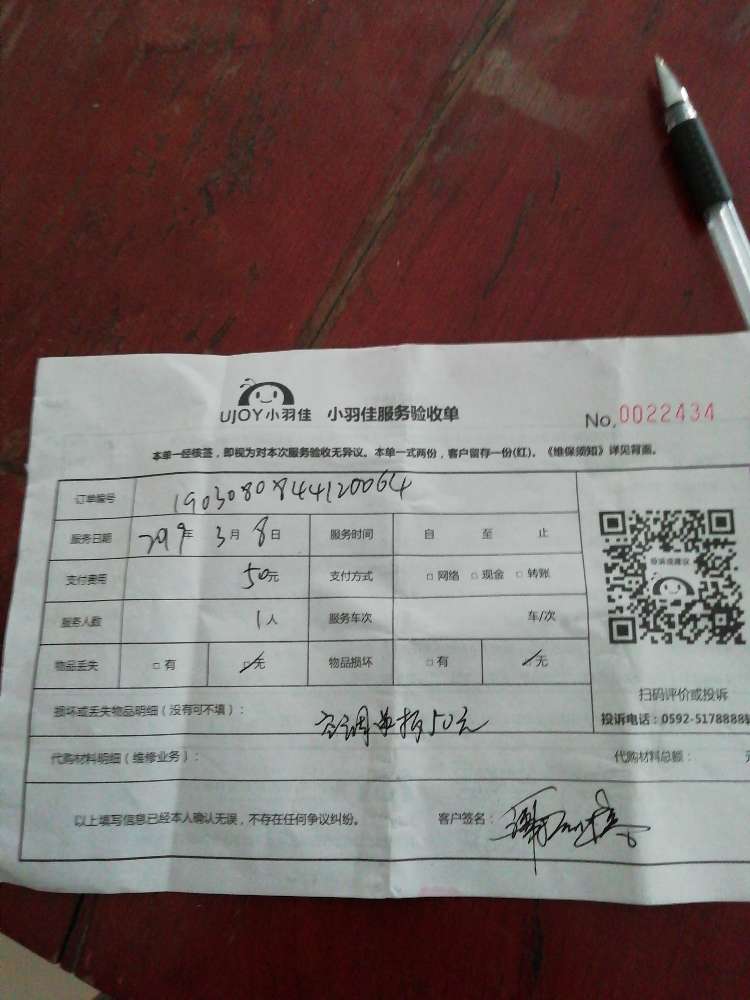 UJOY小羽佳 小羽佳服务验收单
No.0022434
本单一经核签，即视为对本次服务验收无异议。本单一式两份，客户留存一份(红)。《维保须知》详见背面。
订单编号 19030808441120064
服务日期 2019年 3月 8日 服务时间 自 至 止
投诉或建议
支付费用 50元 支付方式 □网络 □现金 □转账
服务人数 1人 服务车次 车/次
物品丢失 □有 □无 物品损坏 □有 □无
扫码评价或投诉
损坏或丢失物品明细（没有可不填）： 空调单拆50元
投诉电话：0592-5178888
代购材料明细（维修业务）： 代购材料总额：
以上填写信息已经本人确认无误，不存在任何争议纠纷。 客户签名：